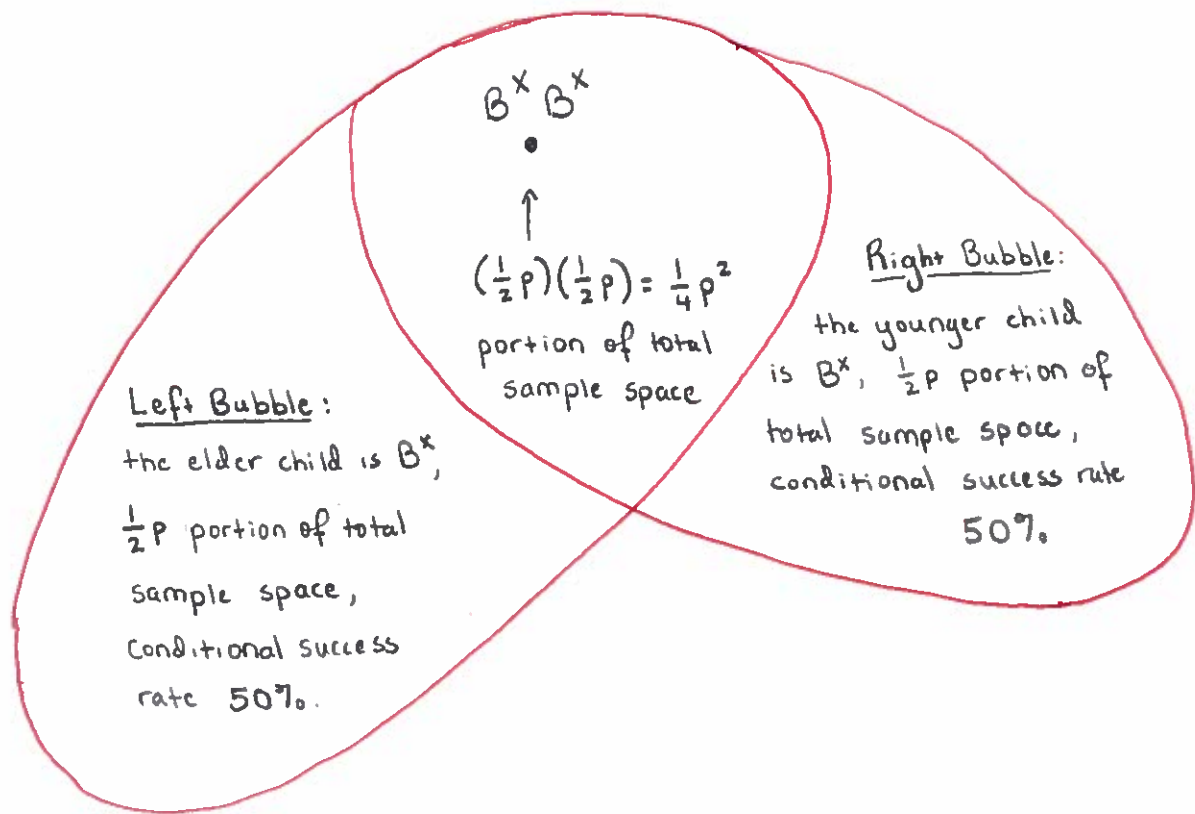 B^x B^x
↑
(1/2 p)(1/2 p) = 1/4 p^2
portion of total
sample space
Left Bubble:
the elder child is B^x,
1/2 p portion of total
sample space,
conditional success
rate 50%.
Right Bubble:
the younger child
is B^x, 1/2 p portion of
total sample space,
conditional success rate
50%